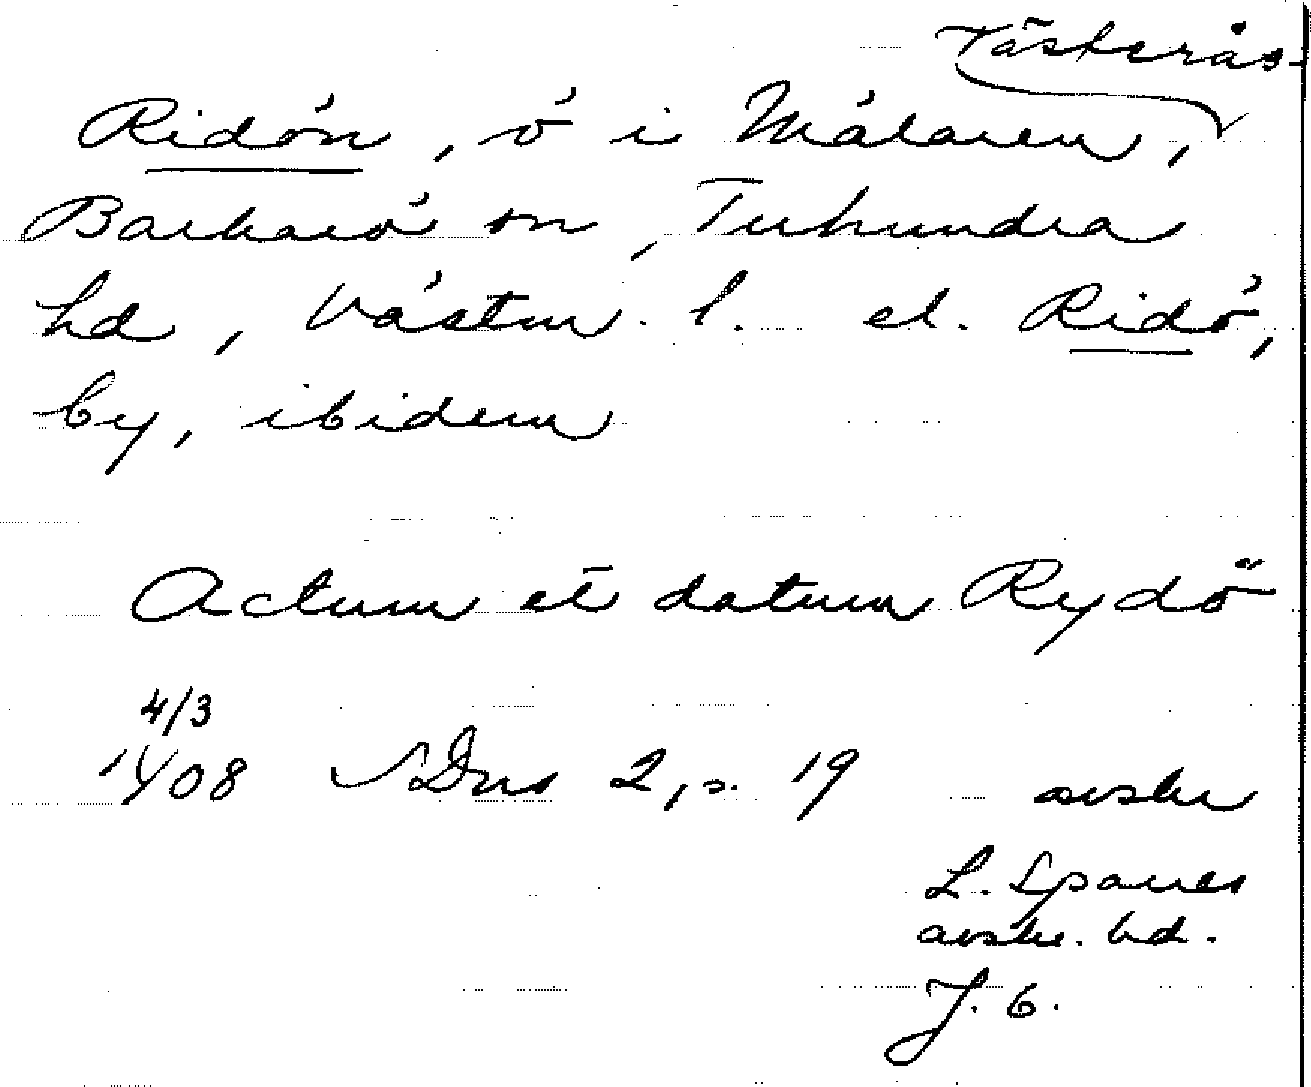 Västerås-
Ridön, ö i Mälaren,
Barkarö sn, Tuhundra
hd, Västm. l. el. Ridö,
by, ibidem
Actum et datum Rydö
4/3
1408 SDns 2, s. 19 avskr
L. Spanes
avskr. bd.
J. 6.